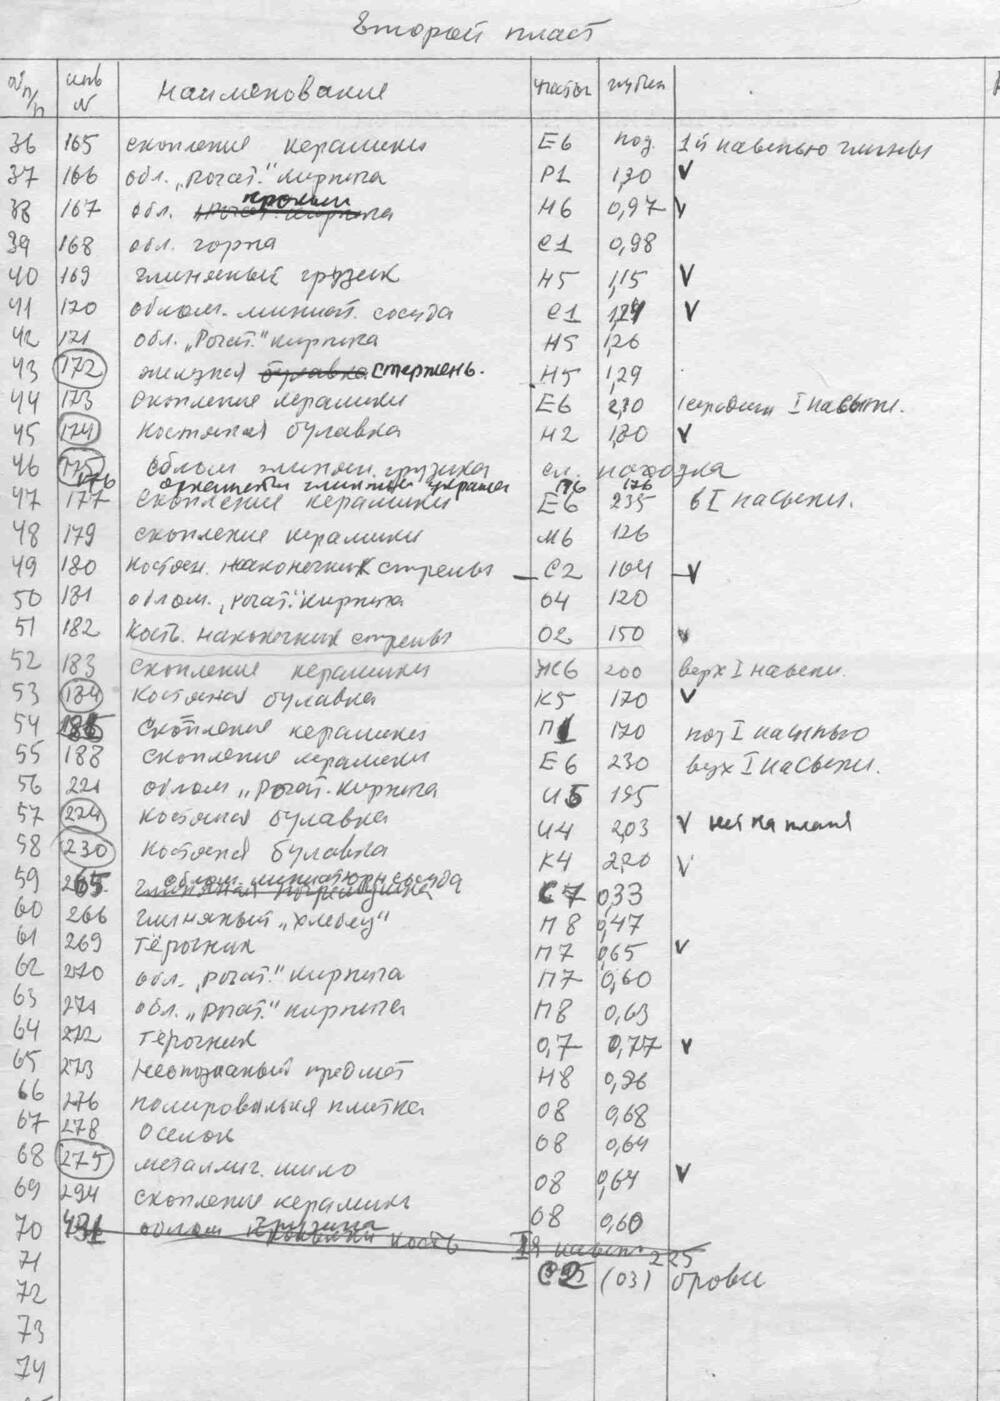 Второй пласт
№ п/п инв N Наименование участок глубин
36 165 скопление керамики Е6 под 1й насыпью глины
37 166 обл. „рогат." кирпича Р1 1,30 V
38 167 обл. крышки Н6 0,97 V
39 168 обл. горна С1 0,98
40 169 глиняный грузик Н5 1,15 V
41 170 облом. миниат. сосуда С1 V
42 171 обл. „Рогат." кирпича Н5 1,26
43 172 железная булавка стержень. Н5 1,29
44 173 скопление керамики Е6 2,30 середина I насыпи.
45 174 костяная булавка Н2 V
46 175 облом глинян. грузика сл. находка
176 глиняный 176 176
47 177 скопление керамики Е6 235 в I насыпи.
48 179 скопление керамики М6 126
49 180 костян. наконечник стрелы – С2 164 V
50 181 облом. „рогат." кирпича О4 120
51 182 Кость. наконечник стрелы О2 150 V
52 183 скопление керамики Ж6 200 верх I насыпи.
53 184 костяная булавка К5 170 V
54 скопление керамики П1 170 под I насыпью
55 188 скопление керамики Е6 230 верх I насыпи.
56 221 облом „Рогат. кирпича И5 195
57 224 костяная булавка И4 2,03 V нет на плане
58 230 костяная булавка К4 2,20 V
59 265. облом. миниатюрн сосуда С7 0,33
60 266 глиняный „хлебец" П8 0,47
61 269 тёрочник П7 0,65 V
62 270 обл. „рогат." кирпича П7 0,60
63 271 обл. „рогат." кирпича П8 0,63
64 272 тёрочник 0,7 0,77 V
65 273 неопознаный предмет Н8
66 276 полировальня плитка О8 0,68
67 278 оселок О8 0,64
68 275 металлич. шило О8 0,64 V
69 294 скопление керамики О8 0,60
70 облом грузика кость I я насып 225
71 С2 (03) бровки
72
73
74